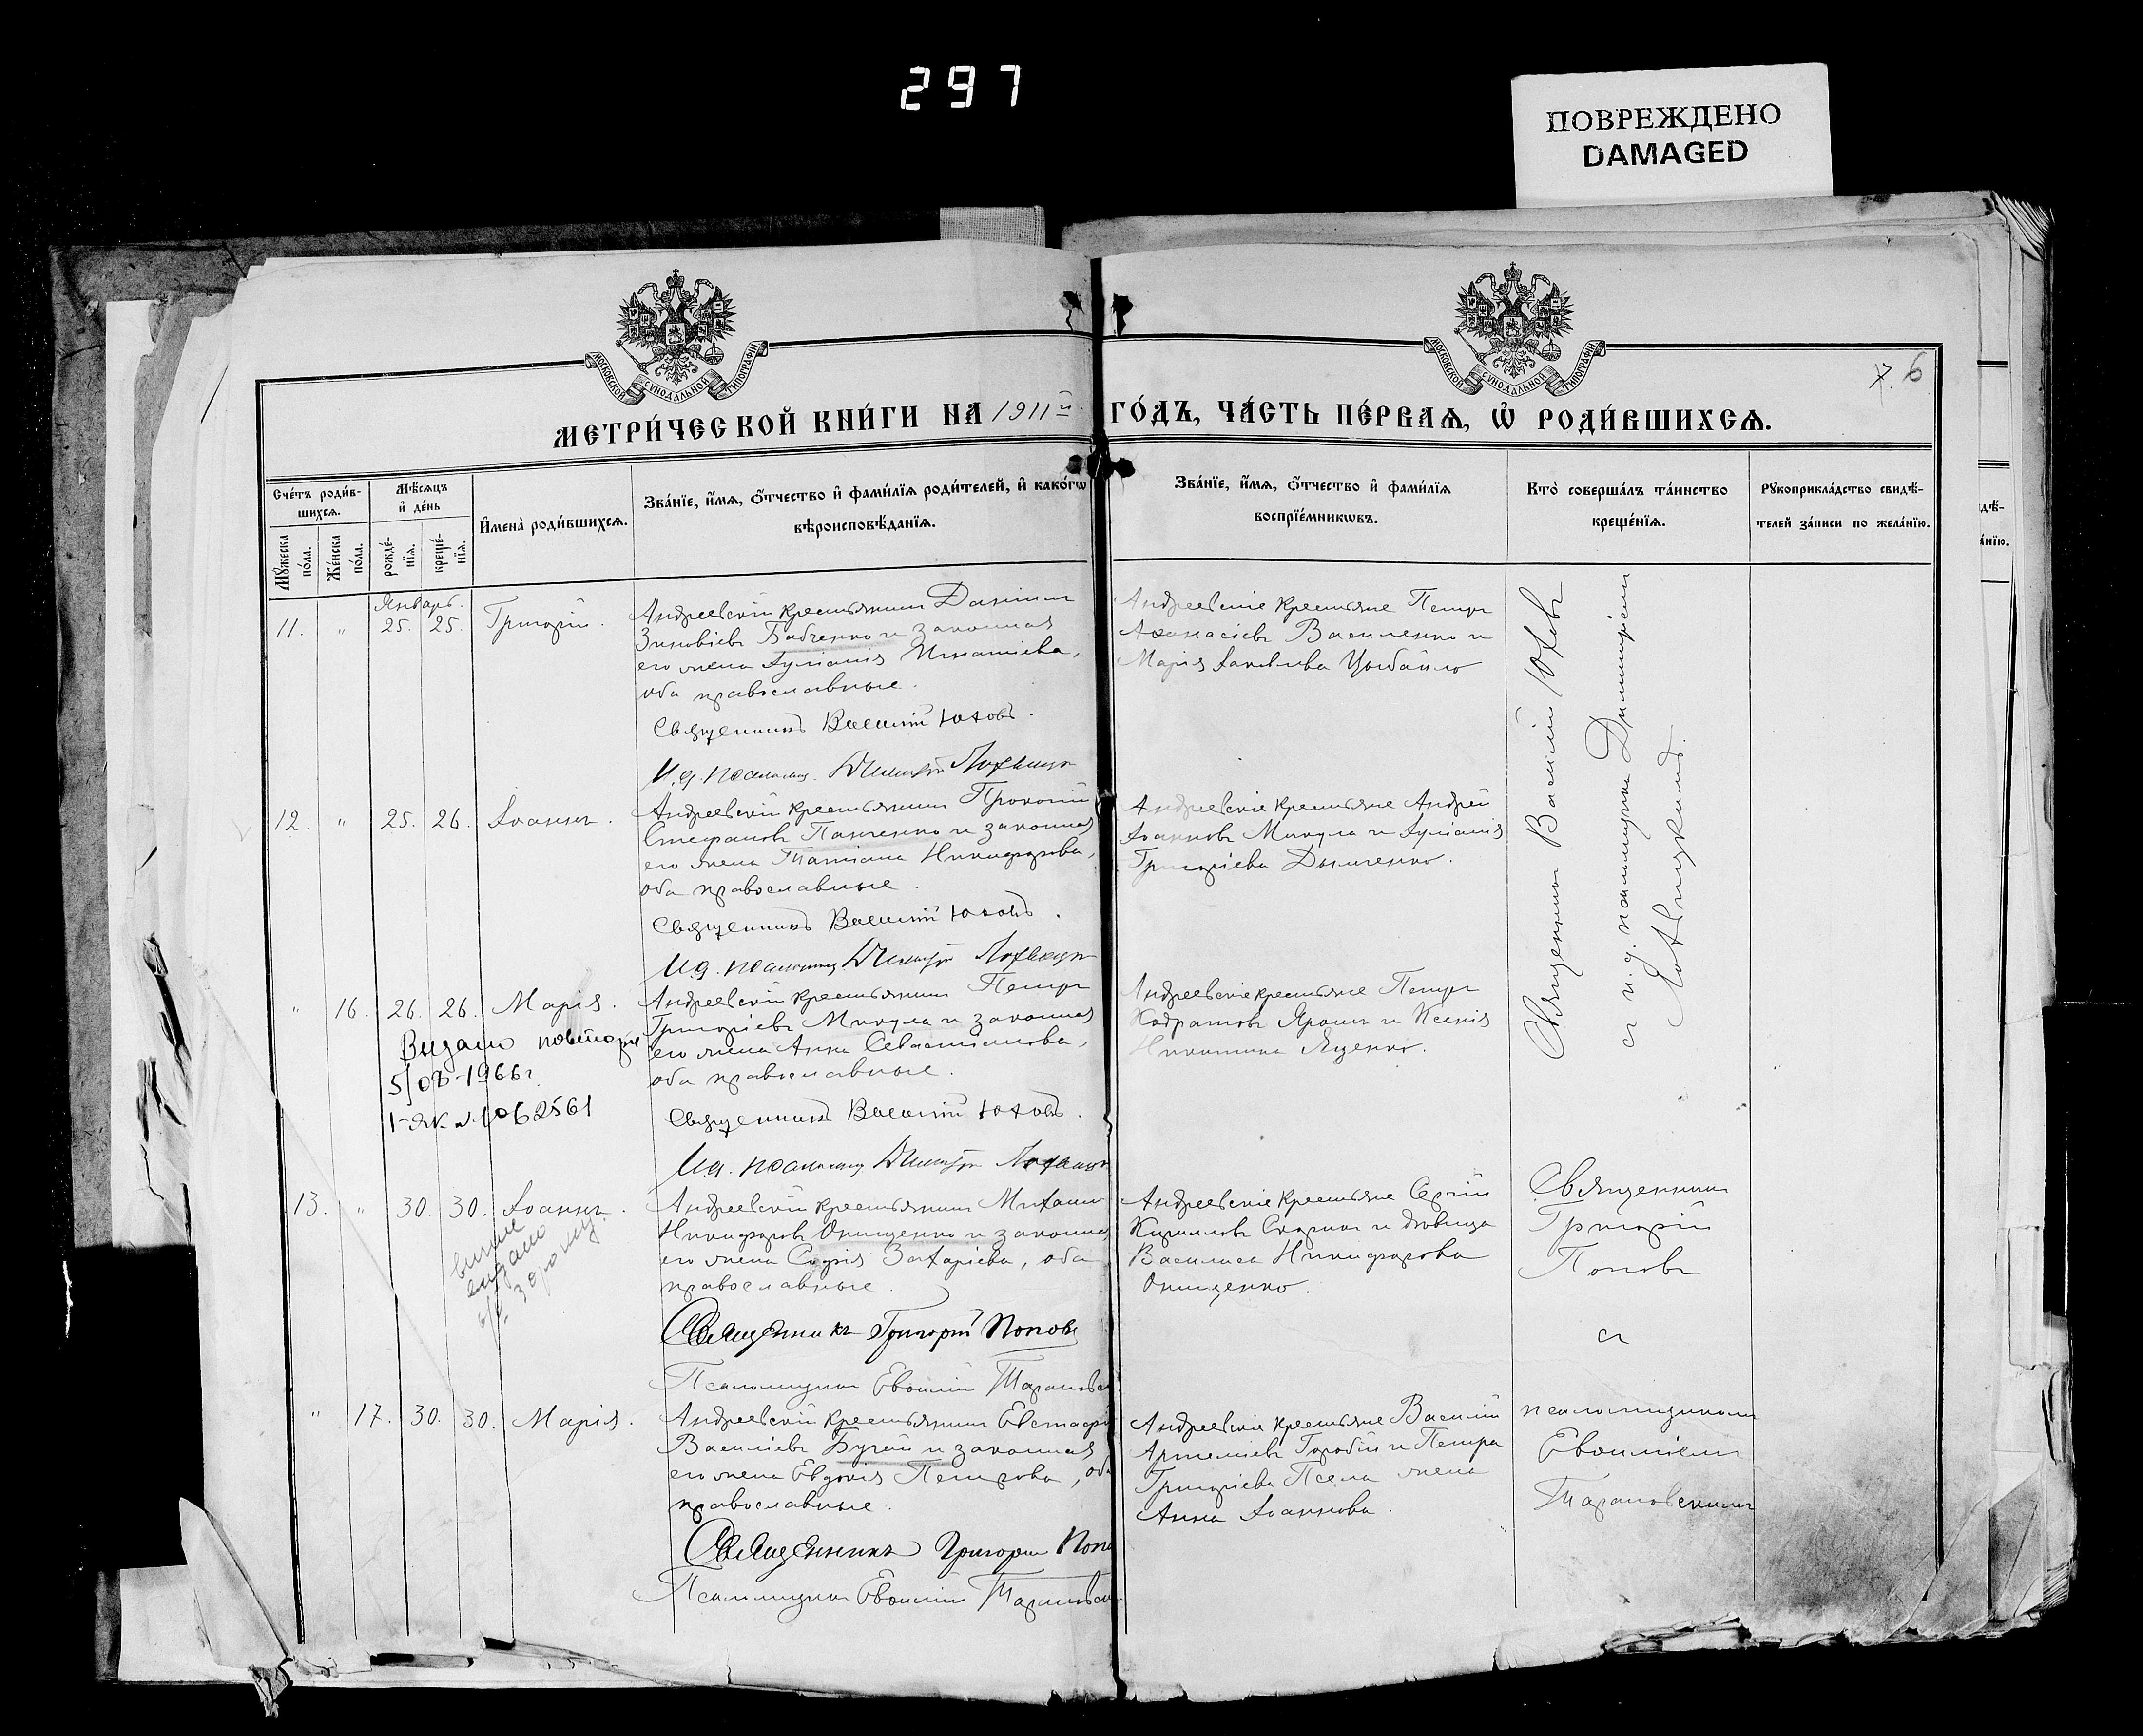 297
ПОВРЕЖДЕНО
DAMAGED
МОСКОВСКОЙ СѴНОДАЛЬНОЙ ТИПОГРАФІИ
МОСКОВСКОЙ СѴНОДАЛЬНОЙ ТИПОГРАФІИ
7. 6
МЕТРИ́ЧЕСКОЙ КНИ́ГИ НА 1911й ГО́ДЪ, ЧА́СТЬ ПЕ́РВАЯ, Ѡ҆ РОДИ́ВШИХСЯ.
Сче́тъ роди́в-
шихся.
Мꙋ́жеска по́ла.
Же́нска по́ла.
Мѣ́сяцъ
и҆ де́нь
рожде́-
нїя.
креще́-
нїя.
И҆мена̀ роди́вшихся.
Зва́нїе, и҆́мя, ѻ҆́тчество и҆ фами́лїя роди́телей, и҆ како́гѡ
вѣроисповѣ́данїя.
Зва́нїе, и҆́мя, ѻ҆́тчество и҆ фами́лїя
воспрїе́мникѡвъ.
Кто̀ соверша́лъ та́инство
креще́нїя.
Рꙋкоприкла́дство свидѣ́-
телей за́писи по жела́нїю.
Январь.
11. " 25. 25. Григорій.
Андреевскій крестьянинъ Даніилъ
Зиновіевъ Бабченко и законная
его жена Іуліанія Игнатіева,
оба православные.
Священникъ Василій Юховъ.
И.д. псаломщ. Димитрій Лохвицк
Андреевскіе крестьяне Петръ
Аѳанасіевъ Василенко и
Марія Іаковлева Цыбайло
Священникъ Василій Юховъ
съ и.д. псаломщика Димитріемъ
Лохвицкимъ.
12. " 25. 26. Іоаннъ.
Андреевскій крестьянинъ Прокопій
Стефановъ Панченко и законная
его жена Татіана Никифорова,
оба православные.
Священникъ Василій Юховъ.
И.д. псаломщ Димитрій Лохвицк
Андреевскіе крестьяне Андрей
Іоанновъ Микула и Іуліанія
Григоріева Дымченко.
" 16. 26. 26. Марія.
Видано повторн
5/08-1966г
1-ЯК № 1062561
Андреевскій крестьянинъ Петръ
Григоріевъ Микула и законная
его жена Анна Севастіанова,
оба православные.
Священникъ Василій Юховъ.
И.д. псаломщ Димитрій Лохвицк
Андреевскіе крестьяне Петръ
Кодратовъ Ярошъ и Ксенія
Никитина Яценко.
13. " 30. 30. Іоаннъ.
видано
Андреевскій крестьянинъ Михаилъ
Никифоровъ Онищенко и законная
его жена Софія Захаріева, оба
православные.
Священникъ Григорій Поповъ
Псаломщикъ Евѳимій Тарановск
Андреевскіе крестьяне Сергій
Кирилловъ и дѣвица
Василиса Никифорова
Онищенко.
Священникъ
Григорій
Поповъ
съ
псаломщикомъ
Евѳиміемъ
Тарановскимъ
" 17. 30. 30. Марія.
Андреевскій крестьянинъ Евстафій
Василіевъ Бугай и законная
его жена Евдокія Петрова, оба
православные.
Священникъ Григорій Попо
Псаломщикъ Евѳимій Тарановск
Андреевскіе крестьяне Василій
Артеміевъ Горобій и Петра
Григоріева Псела жена
Анна Іоаннова.